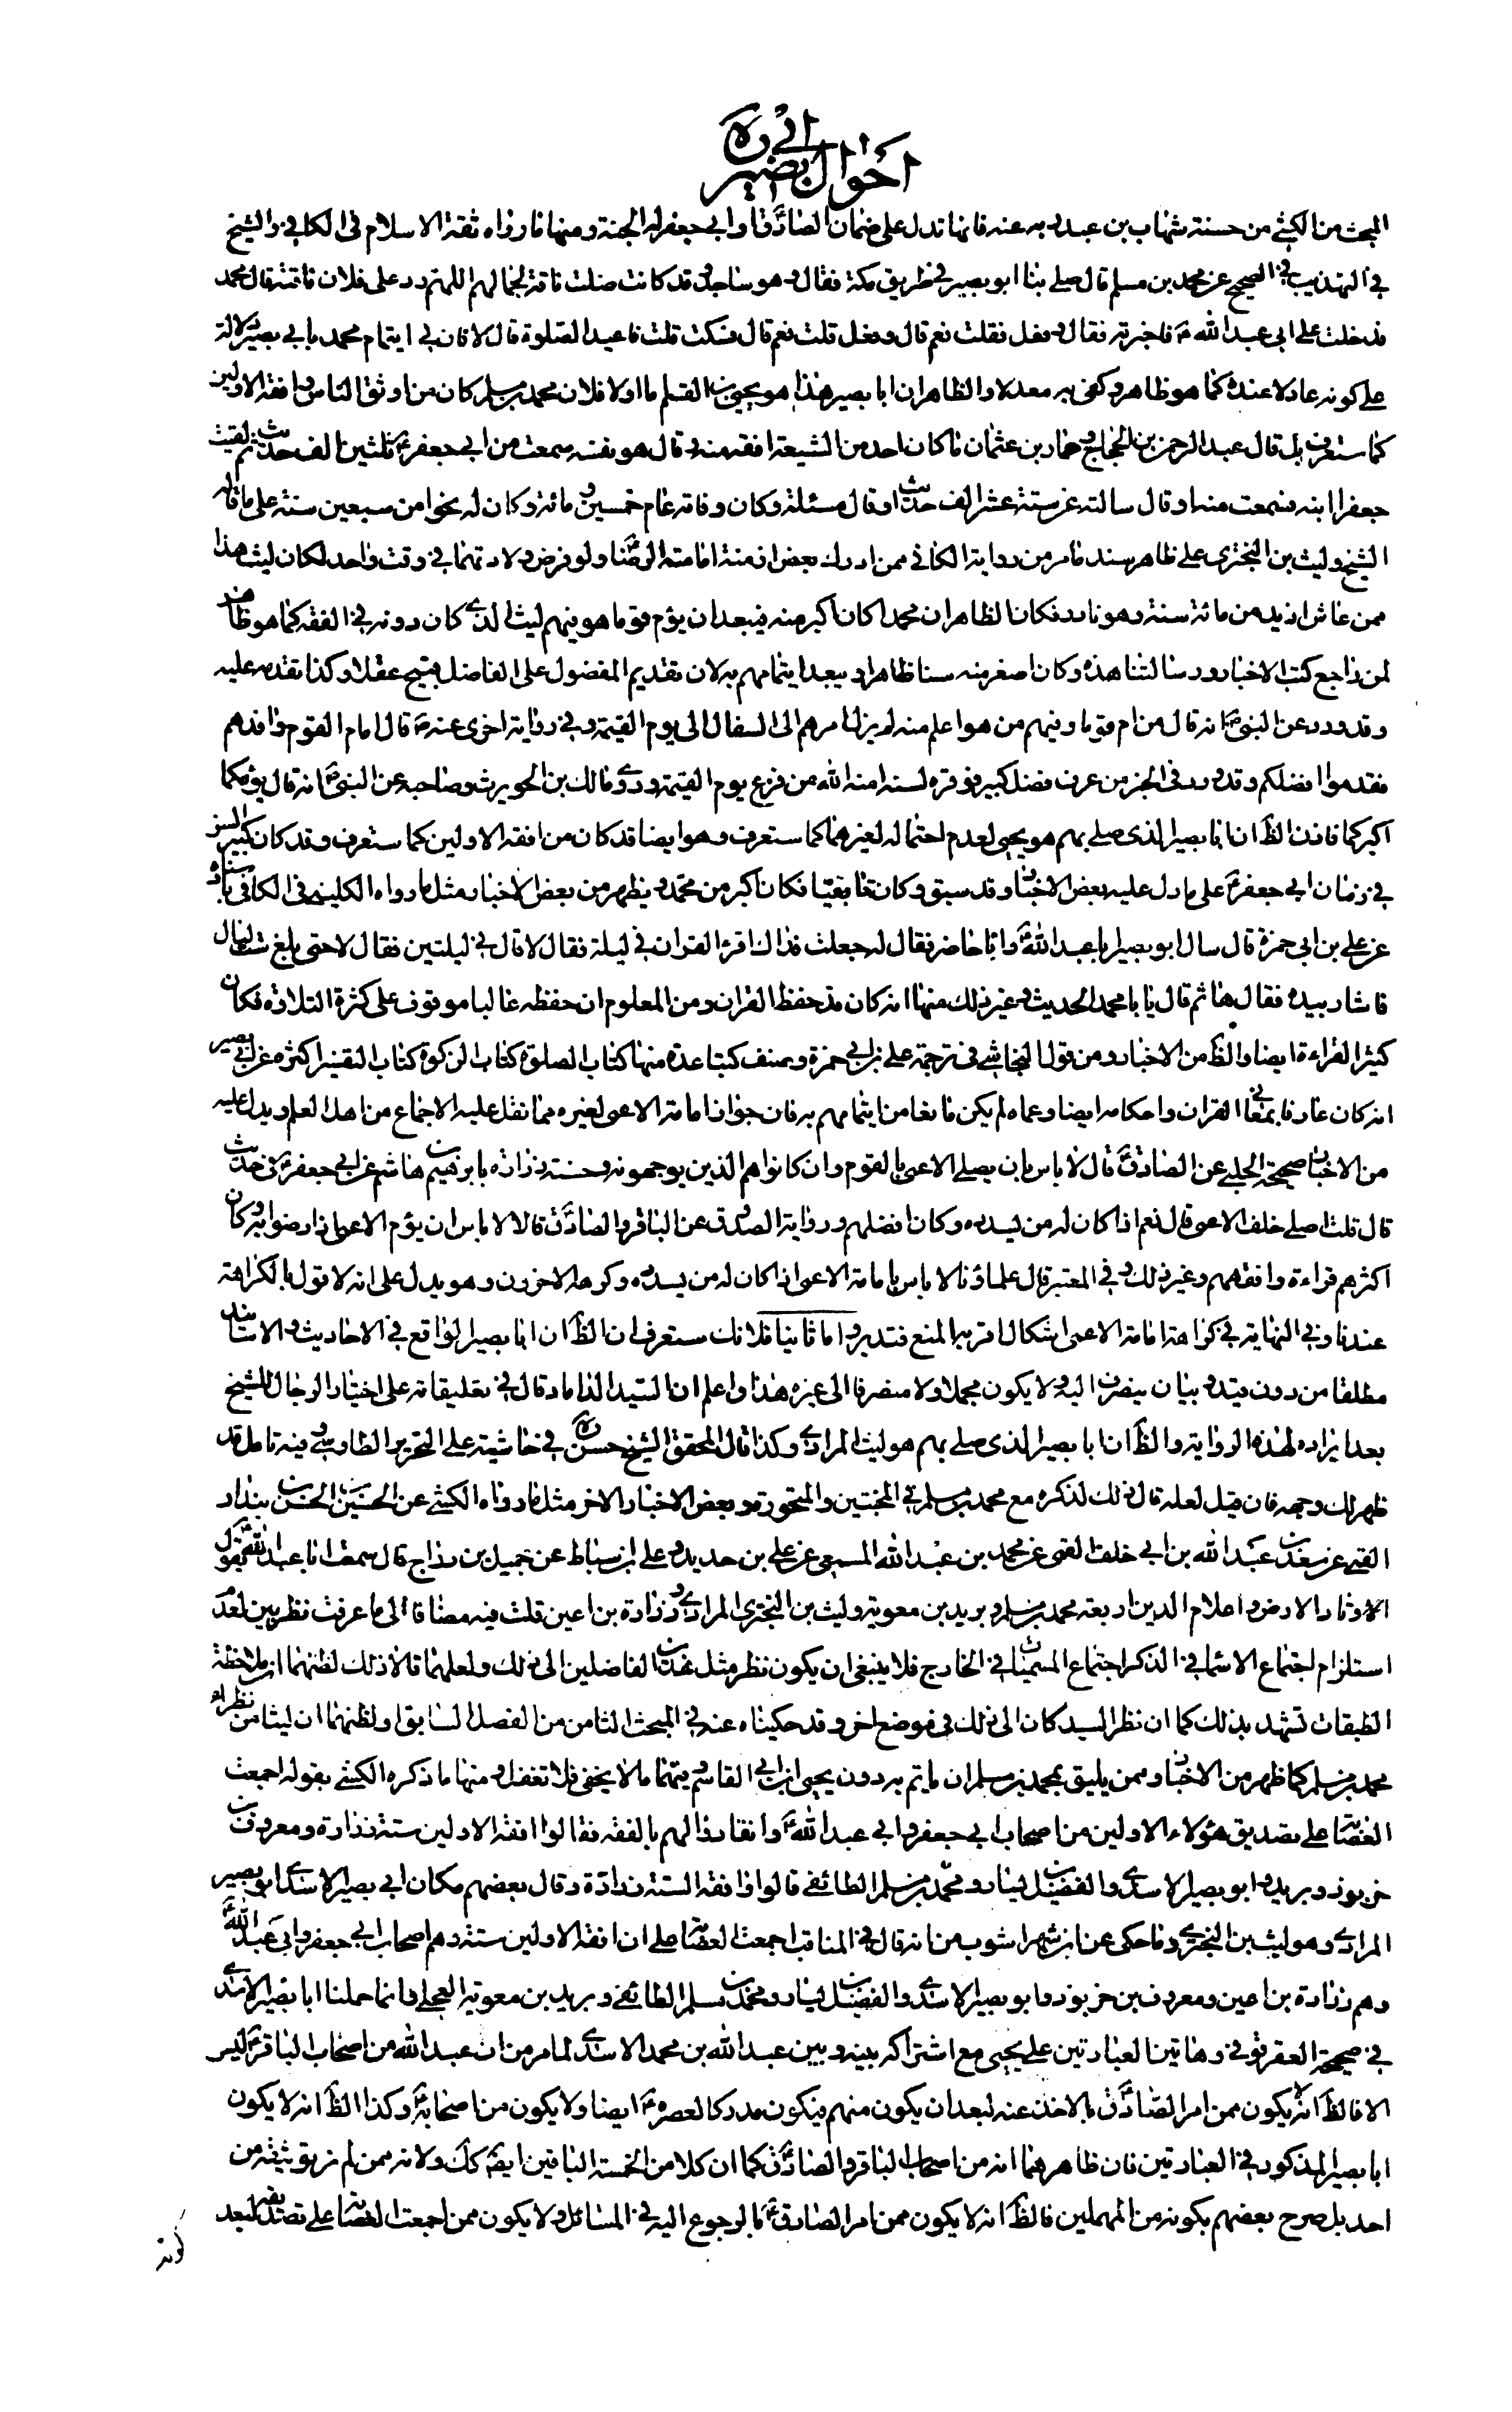 احوال ابي بصير ره
المبحث من الكشي من حسنة شهاب بن عبد ربه عنه فانها تدل على ضمان الصادق ع وابي جعفر له الجنة ومنها ما رواه ثقة الاسلام في الكافي والشيخ
في التهذيب في الصحيح عن محمد بن مسلم قال صلى بنا ابو بصير في طريق مكة فقال وهو ساجد وقد كانت ضلت ناقة لجمالهم اللهم رد على فلان ناقته قال محمد
فدخلت على ابي عبد الله ع فاخبرته فقال وفعل فقلت نعم قال وفعل قلت نعم قال فسكت قلت فاعيد الصلوة قال لا فان في ايتمام محمد بابي بصير دلالة
على كونه عادلا عنده كما هو ظاهر وكفى به معدلا والظاهر ان ابا بصير هذا هو يحيى بن القسم اما اولا فلان محمد بن مسلم كان من اوثق الناس وافقه الاولين
كما ستعرف بل قال عبد الرحمن بن الحجاج وحماد بن عثمان ما كان احد من الشيعة افقه منه وقال هو نفسه سمعت من ابي جعفر ع ثلثين الف حديث ثم لقيت
جعفرا ابنه فسمعت منه او قال سالته عن ستة عشر الف حديث او قال مسئلة وكان وفاته عام خمسين ومائة وكان له نحوا من سبعين سنة على ما قاله
الشيخ وليث بن البختري على ظاهر سند مامر من رواية الكافي ممن ادرك بعض ازمنة امامة الرضا ع ولو فرض ولادتهما في وقت واحد لكان ليث هذا
ممن عاش ازيد من مائة سنة وهو نادر فكان الظاهر ان محمدا كان اكبر منه فيبعد ان يؤم قوما هو فيهم ليث الذي كان دونه في الفقه كما هو ظاهر
لمن راجع كتب الاخبار ورسالتنا هذه وكان اصغر منه سنا ظاهرا ويبعد ايتمامهم به لان تقديم المفضول على الفاضل قبيح عقلا وكذا تقدمه عليه
وقد ورد عن النبي ص انه قال من ام قوما وفيهم من هو اعلم منه لم يزل امرهم الى السفال الى يوم القيمة وفي رواية اخرى عنه ص قال امام القوم وافدهم
فقدموا افضلكم وقد ورد في الخبر من عرف فضل كبير فوقره لسنه امنه الله من فزع يوم القيمة وروى مالك بن الحويرث وصاحبه عن النبي ص انه قال يؤمكما
اكبركما فاذن الظ ان ابا بصير الذي صلى بهم هو يحيى لعدم احتماله لغيرهما كما ستعرف وهو ايضا قد كان من افقه الاولين كما ستعرف وقد كان كبير السن
في زمان ابي جعفر ع على ما دل عليه بعض الاخبار وقد سبق وكان تابعيا فكان اكبر من محمد ويظهر من بعض الاخبار مثل ما رواه الكليني في الكافي باسناده
عن علي بن ابي حمزة قال سال ابو بصير ابا عبد الله ع وانا حاضر فقال له جعلت فداك اقرء القران في ليلة فقال لا قال في ليلتين فقال لا حتى بلغ ست ليال
فاشار بيده فقال ها ثم قال يا ابا محمد الحديث وغير ذلك منها انه كان قد حفظ القران ومن المعلوم ان حفظه غالبا موقوف على كثرة التلاوة فكان
كثير القراءة ايضا والظ من الاخبار ومن قول النجاشي في ترجمة علي بن ابي حمزة وصنف كتبا عدة منها كتاب الصلوة كتاب الزكوة كتاب التفسير اكثره عن ابي بصير
انه كان عارفا بمعاني القران واحكامه ايضا وعماه لم يكن مانعا من ايتمامهم به فان جواز امامة الاعمى لغيره مما نقل عليه الاجماع من اهل العلم ويدل عليه
من الاخبار صحيحة الحلبي عن الصادق ع قال لا باس بان يصلي الاعمى بالقوم وان كانوا هم الذين يوجهونه وحسنة زرارة بابرهيم بن هاشم عن ابي جعفر ع في حديث
قال قلت اصلي خلف الاعمى قال نعم اذا كان له من يسدده وكان افضلهم ورواية الصدوق عن الباقر والصادق ع قالا لا باس ان يؤم الاعمى اذا رضوا به وكان
اكثرهم قراءة وافقههم وغير ذلك وفي المعتبر قال علماؤنا لا باس بامامة الاعمى اذا كان له من يسدده وكرهه الاخرون وهو يدل على انه لا قول بالكراهة
عندنا وفي النهاية في كراهة امامة الاعمى اشكال اقربه المنع فتدبر واما ثانيا فلانك ستعرف ان الظ ان ابا بصير الواقع في الاحاديث والاسانيد
مطلقا من دون قيد وبيان ينصرف اليه ولا يكون مجملا ولا منصرفا الى غيره هذا واعلم ان السيد الداماد قال في تعليقاته على اختيار الرجال للشيخ
بعد ايراده لهذه الرواية والظ ان ابا بصير الذي صلى بهم هو ليث المرادي وكذا قال المحقق الشيخ حسن ره في حاشيته على التحرير الطاوسي وفيه تامل قد
ظهر لك وجهه فان قيل لعله قال ذلك لذكره مع محمد بن مسلم في المخبتين والمتحورة وبعض الاخبار الاخر مثل ما رواه الكشي عن الحسين بن الحسن بن بندار
القمي عن سعد بن عبد الله بن ابي خلف القمي عن محمد بن عبد الله المسمعي عن علي بن حديد وعلي بن اسباط عن جميل بن دراج قال سمعت ابا عبد الله ع يقول
الاوتاد الارض واعلام الدين اربعة محمد بن مسلم وبريد بن معوية وليث بن البختري المرادي وزرارة بن اعين قلت فيه مضافا الى ما عرفت نظر بين لعدم
استلزام اجتماع الاسماء في الذكر اجتماع المسميات في الخارج فلا ينبغي ان يكون نظر مثل هذين الفاضلين الى ذلك ولعلهما قالا ذلك لظنهما ان ملاحظة
الطبقات تشهد بذلك كما ان نظر السيد كان الى ذلك في موضع اخر وقد حكيناه عنه في المبحث الثامن من الفصل السابق او لظنهما ان ليثا من نظراء
محمد بن مسلم كما ظهر من الاخبار وممن يليق بمحمد بن مسلم ان ياتم به دون يحيى بن ابي القاسم وفيهما ما لا يخفى فلا تغفل ومنها ما ذكره الكشي بقوله اجمعت
العصابة على تصديق هؤلاء الاولين من اصحاب ابي جعفر وابي عبد الله ع وانقادوا لهم بالفقه فقالوا افقه الاولين ستة زرارة ومعروف بن
خربوذ وبريد وابو بصير الاسدي والفضيل بن يسار ومحمد بن مسلم الطائفي قالوا وافقه الستة زرارة وقال بعضهم مكان ابي بصير الاسدي ابو بصير
المرادي وهو ليث بن البختري وما حكى عن ابن شهراشوب من انه قال في المناقب اجمعت العصابة على ان افقه الاولين ستة وهم اصحاب ابي جعفر وابي عبد الله ع
وهم زرارة بن اعين ومعروف بن خربوذ وابو بصير الاسدي والفضيل بن يسار ومحمد بن مسلم الطائفي وبريد بن معوية العجلي وانما حملنا ابا بصير الاسدي
في صحيحة العقرقوفي وهاتين العبارتين على يحيى مع اشتراكه بينه وبين عبد الله بن محمد الاسدي لما مر من ان عبد الله من اصحاب الباقر ع ليس
الا فالظ انه لا يكون ممن امر الصادق ع بالاخذ عنه لبعد ان يكون منهم فيكون مدركا لعصره ع ايضا ولا يكون من اصحابه ع وكذا الظ انه لا يكون
ابا بصير المذكور في العبارتين فان ظاهرهما انه من اصحاب الباقر والصادق ع كما ان كلا من الخمسة الباقين ايضا كك ولانه ممن لم نر توثيقه من
احد بل صرح بعضهم بكونه من المهملين فالظ انه لا يكون ممن امر الصادق ع بالرجوع اليه في المسائل ولا يكون ممن اجمعت العصابة على تصديقه لبعد
كونه